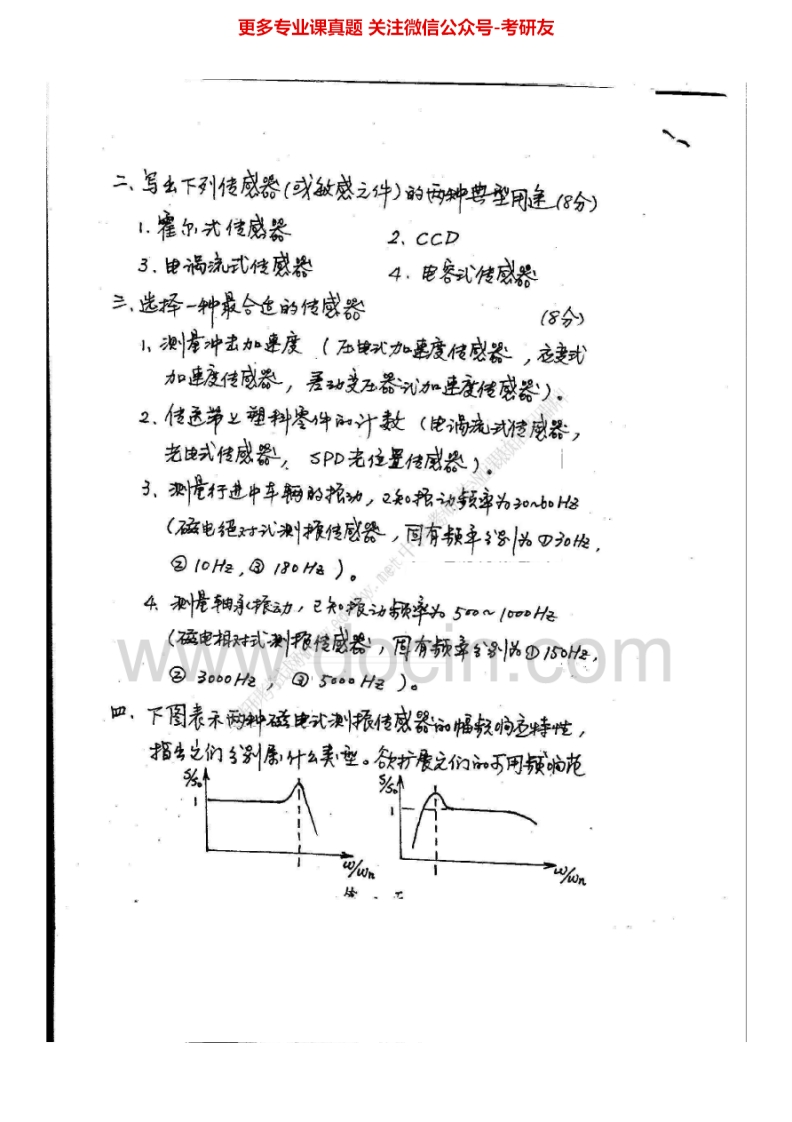 更多专业课真题 关注微信公众号-考研友
二、写出下列传感器(或敏感元件)的两种典型用途(8分)
1. 霍尔式传感器
2. CCD
3. 电涡流式传感器
4. 电容式传感器
三、选择一种最合适的传感器 (8分)
1、测量冲击加速度 (压电式加速度传感器,应变式
加速度传感器,差动变压器式加速度传感器)。
2、传送带上塑料零件的计数 (电涡流式传感器,
光电式传感器, SPD光位置传感器)。
3、测量行进中车辆的振动,已知振动频率为30~60Hz
(磁电绝对式测振传感器,固有频率分别为①30Hz,
②10Hz,③180Hz)。
4. 测量轴承振动,已知振动频率为500~1000Hz
(磁电相对式测振传感器,固有频率分别为①150Hz,
②3000Hz, ③5000Hz)。
四、下图表示两种磁电式测振传感器的幅频响应特性,
指出它们分别属什么类型。欲扩展它们的可用频响范
S/S₀
1
ω/ωn
S/S₀
1
ω/ωn
www.docin.com